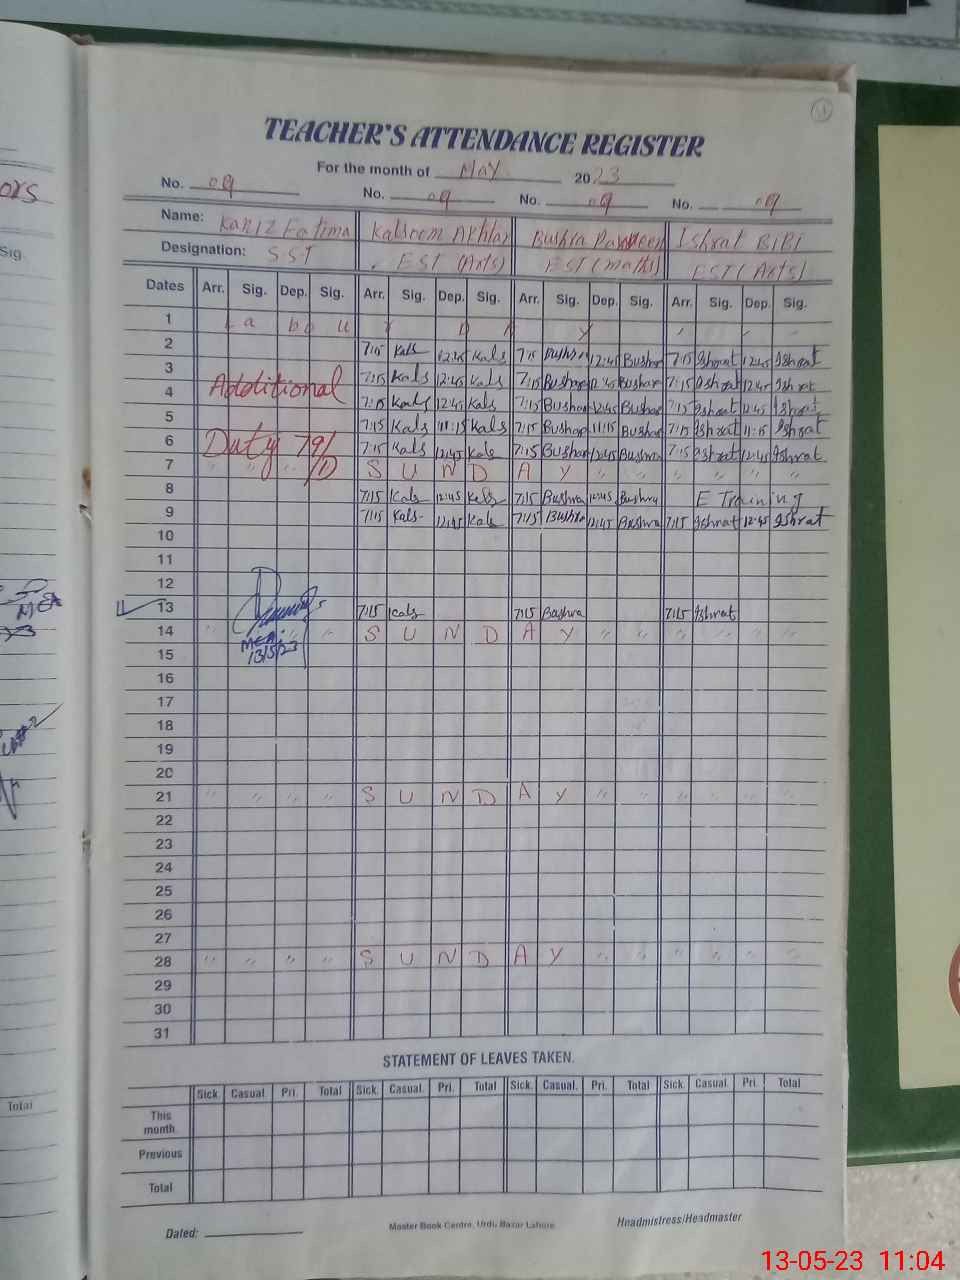 TEACHER'S ATTENDANCE REGISTER
For the month of May 2023
No. 09 No. 09 No. 09 No. 09
Name: Kaniz Fatima Kalsoom Akhtar Bushra Parveen Ishrat BiBi
Designation: SST EST (Arts) EST (maths) EST (Arts)
Dates Arr. Sig. Dep. Sig. Arr. Sig. Dep. Sig. Arr. Sig. Dep. Sig. Arr. Sig. Dep. Sig.
1 La bo u r D A Y
2 7:15 Kals 12:45 Kals 7:15 Bushra 12:45 Bushra 7:15 Ishrat 12:45 Ishrat
3 7:15 Kals 12:45 Kals 7:15 Bushra 12:45 Bushra 7:15 Ishrat 12:45 Ishrat
Additional
4 7:15 Kals 12:45 Kals 7:15 Bushra 12:45 Bushra 7:15 Ishrat 12:45 Ishrat
5 7:15 Kals 11:15 Kals 7:15 Bushra 11:15 Bushra 7:15 Ishrat 11:15 Ishrat
6 Duty 79/D 7:15 Kals 12:45 Kals 7:15 Bushra 12:45 Bushra 7:15 Ishrat 12:45 Ishrat
7 " " S U N D A Y " " " " " "
8 7:15 Kals 12:45 Kals 7:15 Bushra 12:45 Bushra E Training
9 7:15 Kals 12:45 Kals 7:15 Bushra 12:45 Bushra 7:15 Ishrat 12:45 Ishrat
10
11
12
13 7:15 Kals 7:15 Bushra 7:15 Ishrat
14 " " " S U N D A Y " " " " " "
MEA
13/5/23
15
16
17
18
19
20
21 " " " " S U N D A Y " " " " " "
22
23
24
25
26
27
28 " " " " S U N D A Y " " " " " "
29
30
31
STATEMENT OF LEAVES TAKEN.
Sick Casual Pri. Total Sick. Casual. Pri. Total Sick. Casual. Pri. Total Sick. Casual. Pri. Total
This
month.
Previous
Total
Dated: Master Book Centre, Urdu Bazar Lahore. Headmistress/Headmaster
ors
Sig.
MEA
Total
13-05-23 11:04